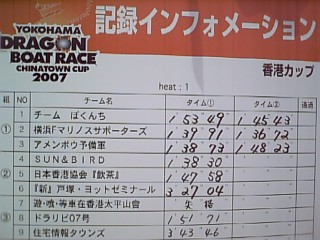 YOKOHAMA
DRAGON
BOAT RACE
CHINATOWN CUP
2007
記録インフォメーション
香港カップ
heat : 1
組 NO チーム名 タイム① タイム② 通過
① 1 チーム ばくんち 1 53 49 1 45 43
2 横浜Fマリノスサポーターズ 1 39 91 1 36 72
3 アメンボウ予備軍 1 38 73 1 48 23
② 4 SUN&BIRD 1 38 30
5 日本香港協会『飲茶』 1 47 58
6 『新』戸塚・ヨットゼミナール 3 27 04
③ 7 遊・喰・等車在香港太平山會 失格
8 ドラリピ07号 1 51 71
9 住宅情報タウンズ 3 43 46